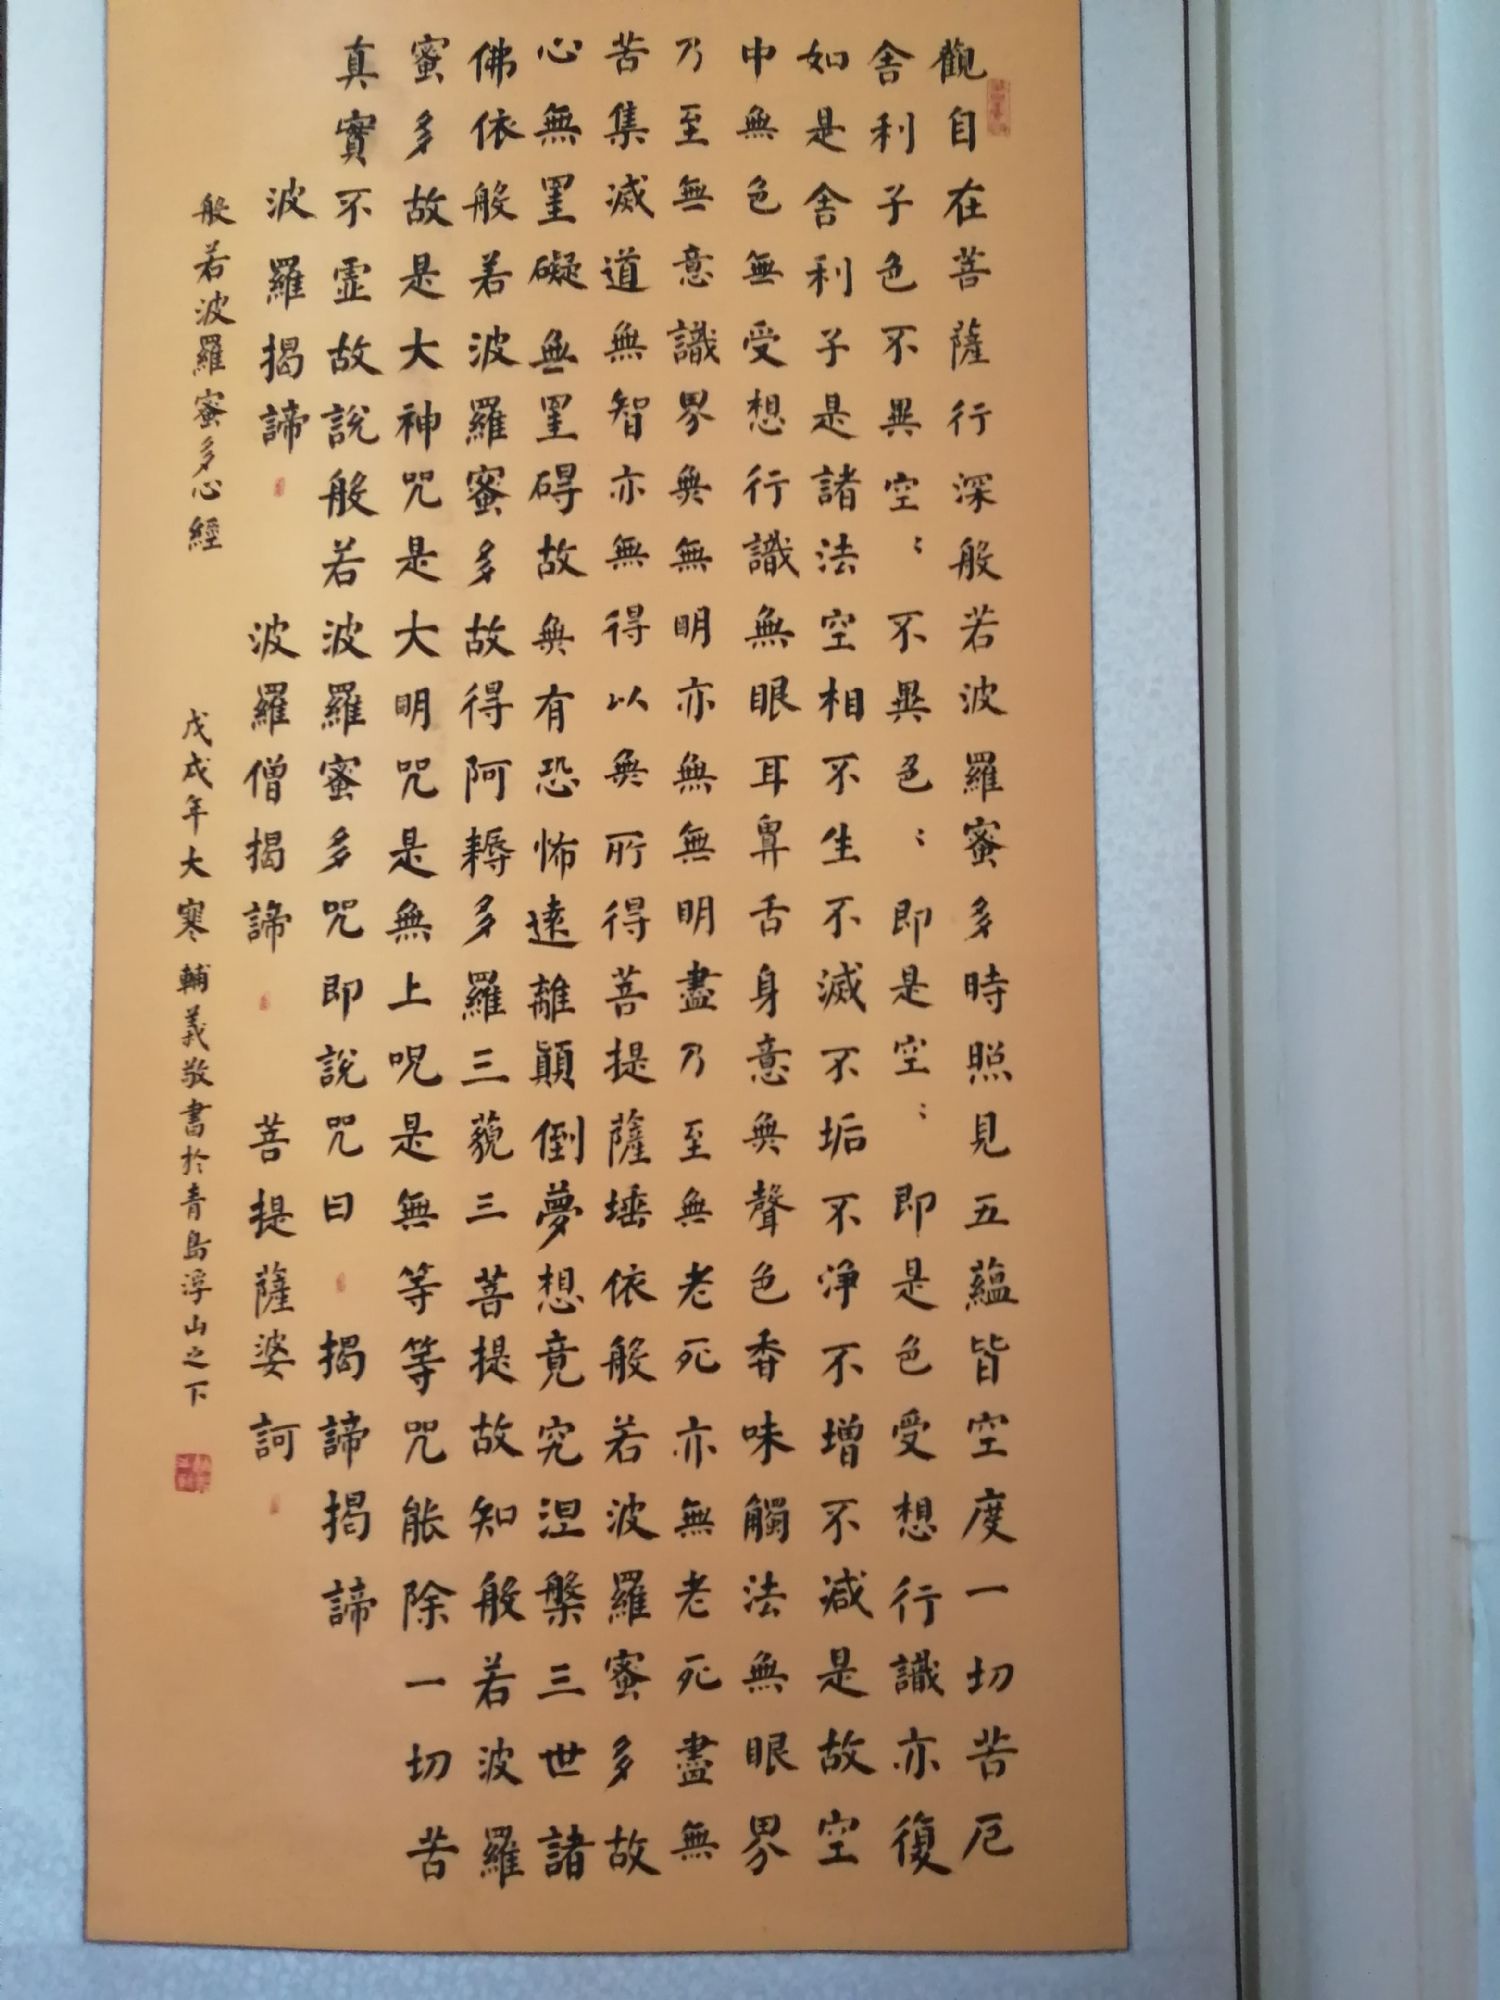 觀自在菩薩行深般若波羅蜜多時照見五蘊皆空度一切苦厄
舍利子色不異空；不異色；即是空；即是色受想行識亦復
如是舍利子是諸法空相不生不滅不垢不淨不增不減是故空
中無色無受想行識無眼耳鼻舌身意無聲色香味觸法無眼界
乃至無意識界無無明亦無無明盡乃至無老死亦無老死盡無
苦集滅道無智亦無得以無所得菩提薩埵依般若波羅蜜多故
心無罣礙無罣碍故無有恐怖遠離顛倒夢想竟究涅槃三世諸
佛依般若波羅蜜多故得阿耨多羅三藐三菩提故知般若波羅
蜜多故是大神咒是大明咒是無上呪是無等等咒能除一切苦
真實不虛故說般若波羅蜜多咒即說咒曰 揭諦揭諦
波羅揭諦 波羅僧揭諦 菩提薩婆訶
般若波羅蜜多心經 戊戌年大寒輔義敬書於青島浮山之下